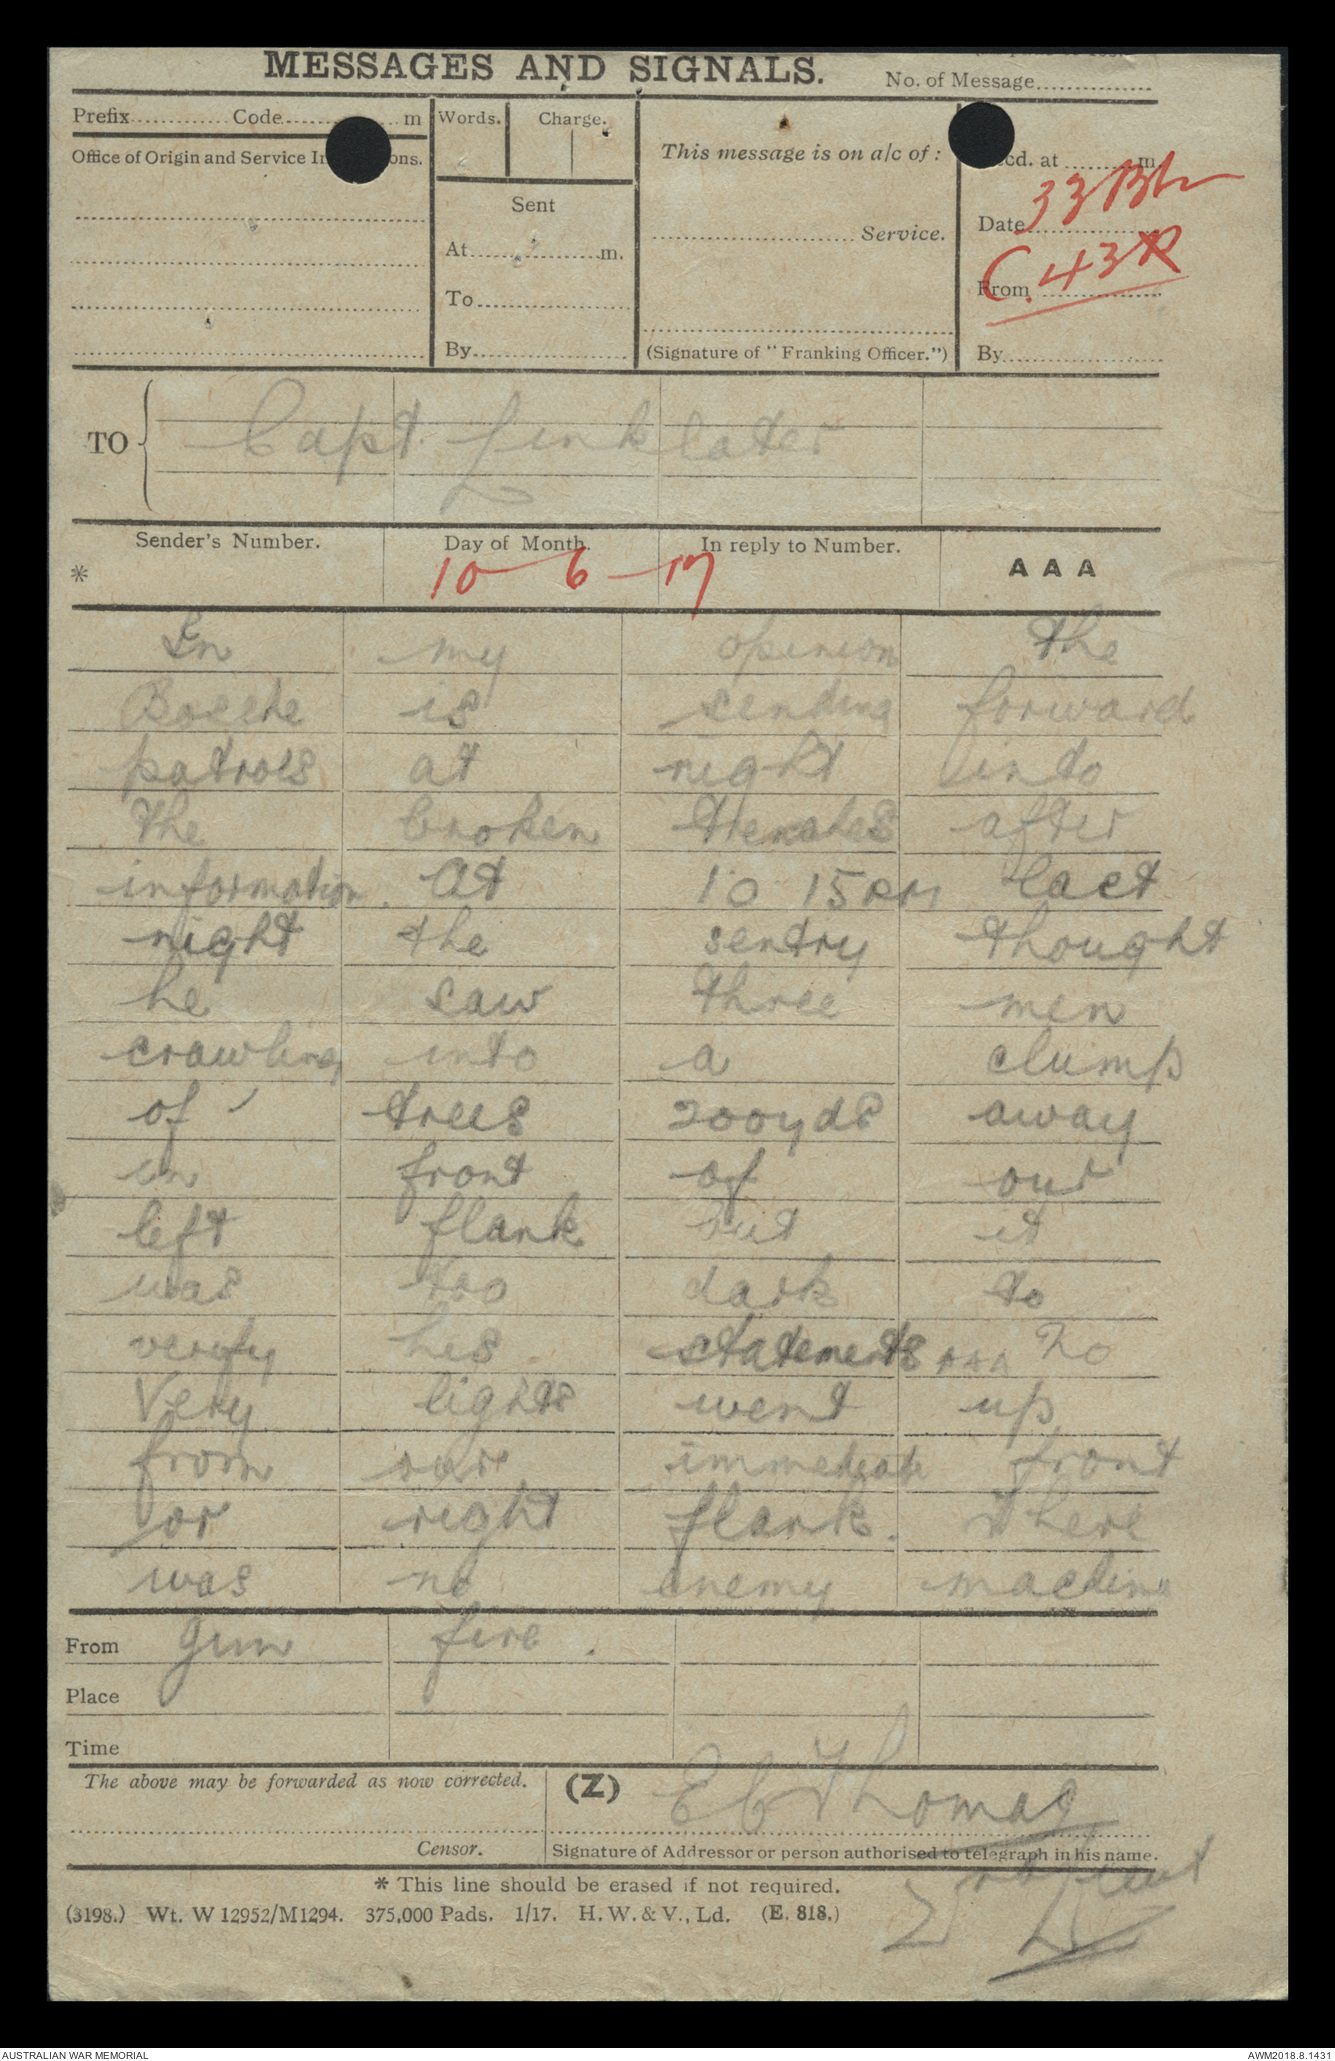 MESSAGES AND SIGNALS.
No. of Message
Prefix Code m Words. Charge.
This message is on a/c of : cd. at m
Office of Origin and Service In ons.
33 Bn
Sent
Date
Service.
At m.
C. 43
From
To
By (Signature of "Franking Officer.") By
TO Capt. Linklater
Sender's Number. Day of Month. In reply to Number. A A A
* 10-6-17
In my opinion the
Bosche is sending forward
patrols at night into
the broken trenches after
information. At 10 15 PM last
night the sentry thought
he saw three men
crawling into a clump
of trees 200yds away
in front of our
left flank but it
was too dark to
verify his statements AAA No
Very lights went up
from our immediate front
or right flank. There
was no enemy machine
From gun fire.
Place
Time
The above may be forwarded as now corrected. (Z) E C Thomas
Censor. Signature of Addressor or person authorised to telegraph in his name.
Lieut
* This line should be erased if not required.
(3198.) Wt. W 12952/M1294. 375,000 Pads. 1/17. H. W. & V., Ld. (E. 818.)
AUSTRALIAN WAR MEMORIAL AWM2018.8.1431